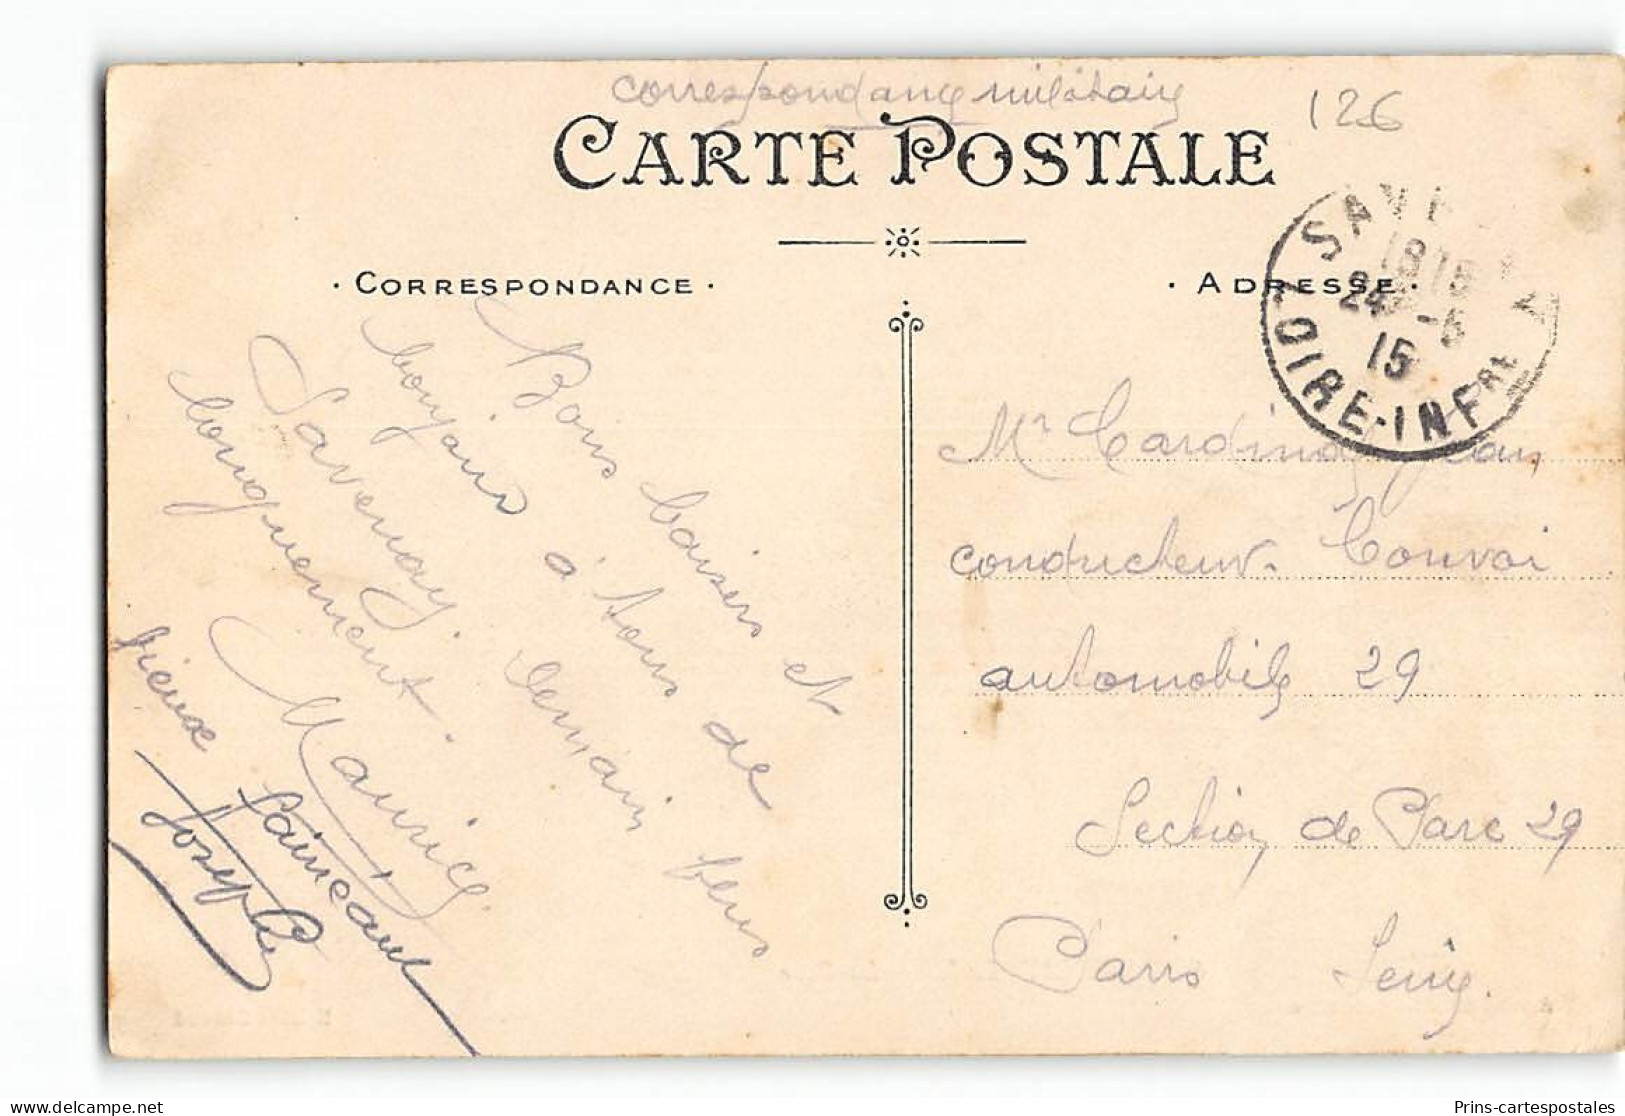 correspondance militaire
126
CARTE POSTALE
· CORRESPONDANCE ·
· ADRESSE ·
SAVENAY
18 15
24 -5
15
LOIRE-INFRE
Bons baisers et
bonjour à tous de
Savenay. demain plus
longuement.
Maurice
vieux faineant
Joseph
Mr Cardinal Jean
conducteur Convoi
automobile 29
Section de Parc 29
Paris Seine.
delcampe.net
Prins-cartespostales